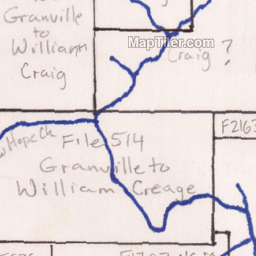 Granville
to
William
Craig
MapTiler.com
Craig ?
Hope Ck
File 514
Granville to
William Creage
F2163